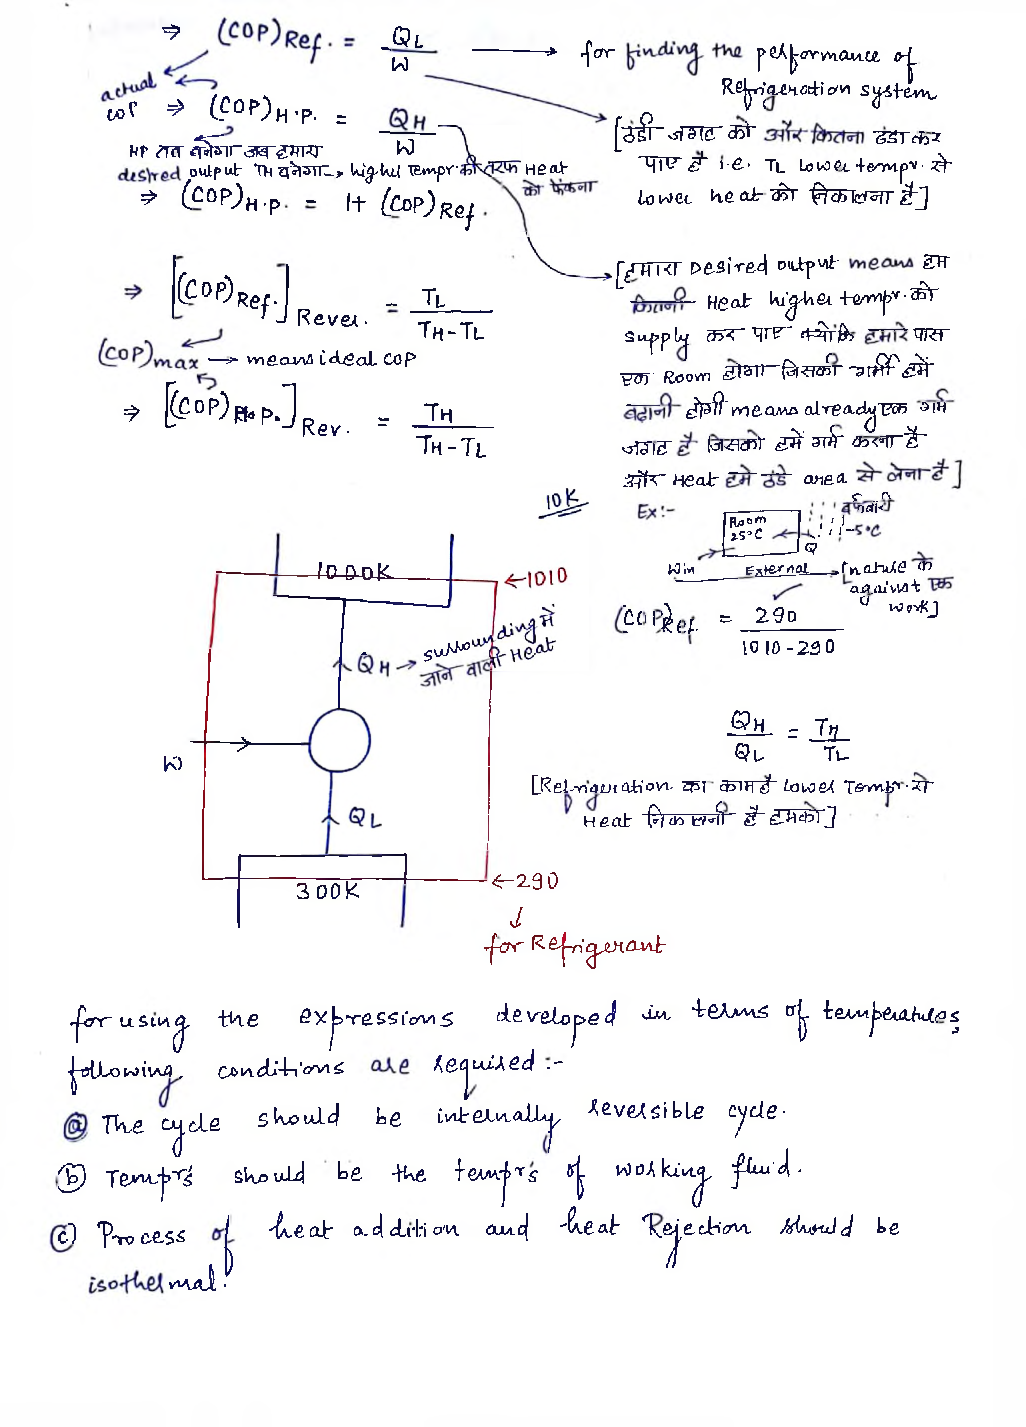 ⇒ (COP)Ref. = QL / W → for finding the performance of
Refrigeration system
actual cop
[ठंडी जगह को और कितना ठंडा कर
पाए है i.e. TL Lower tempr. से
Lower heat को निकालना है]
⇒ (COP)H.P. = QH / W
HP तब बनेगा जब हमारा
desired output TH बनेगा → higher tempr. की तरफ Heat
को फेंकना
⇒ (COP)H.P. = 1+ (COP)Ref.
[हमारा Desired output means हम
कितनी Heat higher tempr. को
supply कर पाए क्योंकि हमारे पास
एक Room होगा जिसकी गर्मी हमें
बढ़ानी होगी means already एक गर्म
जगह है जिसको हमें गर्म करना है
और Heat हमे ठंडे area से लेना है]
⇒ [(COP)Ref.]Rever. = TL / TH-TL
(COP)max → means ideal cop
⇒ [(COP)H.P.]Rev. = TH / TH-TL
10K
Ex:-
Room
25°C
बर्फबारी
-5°C
Q
Win
External → [nature के
against एक
work]
(COP)Ref. = 290 / 1010-290
1000K
←1010
QH → surrounding में
जाने वाली Heat
W
QH / QL = TH / TL
[Refrigeration का काम है Lower Tempr. से
Heat निकालनी है हमको]
QL
300K
←290
↓
for Refrigerant
for using the expressions developed in terms of temperatures,
following conditions are required :-
ⓐ The cycle should be internally reversible cycle.
ⓑ Tempr's should be the tempr's of working fluid.
ⓒ Process of heat addition and heat Rejection should be
isothermal.